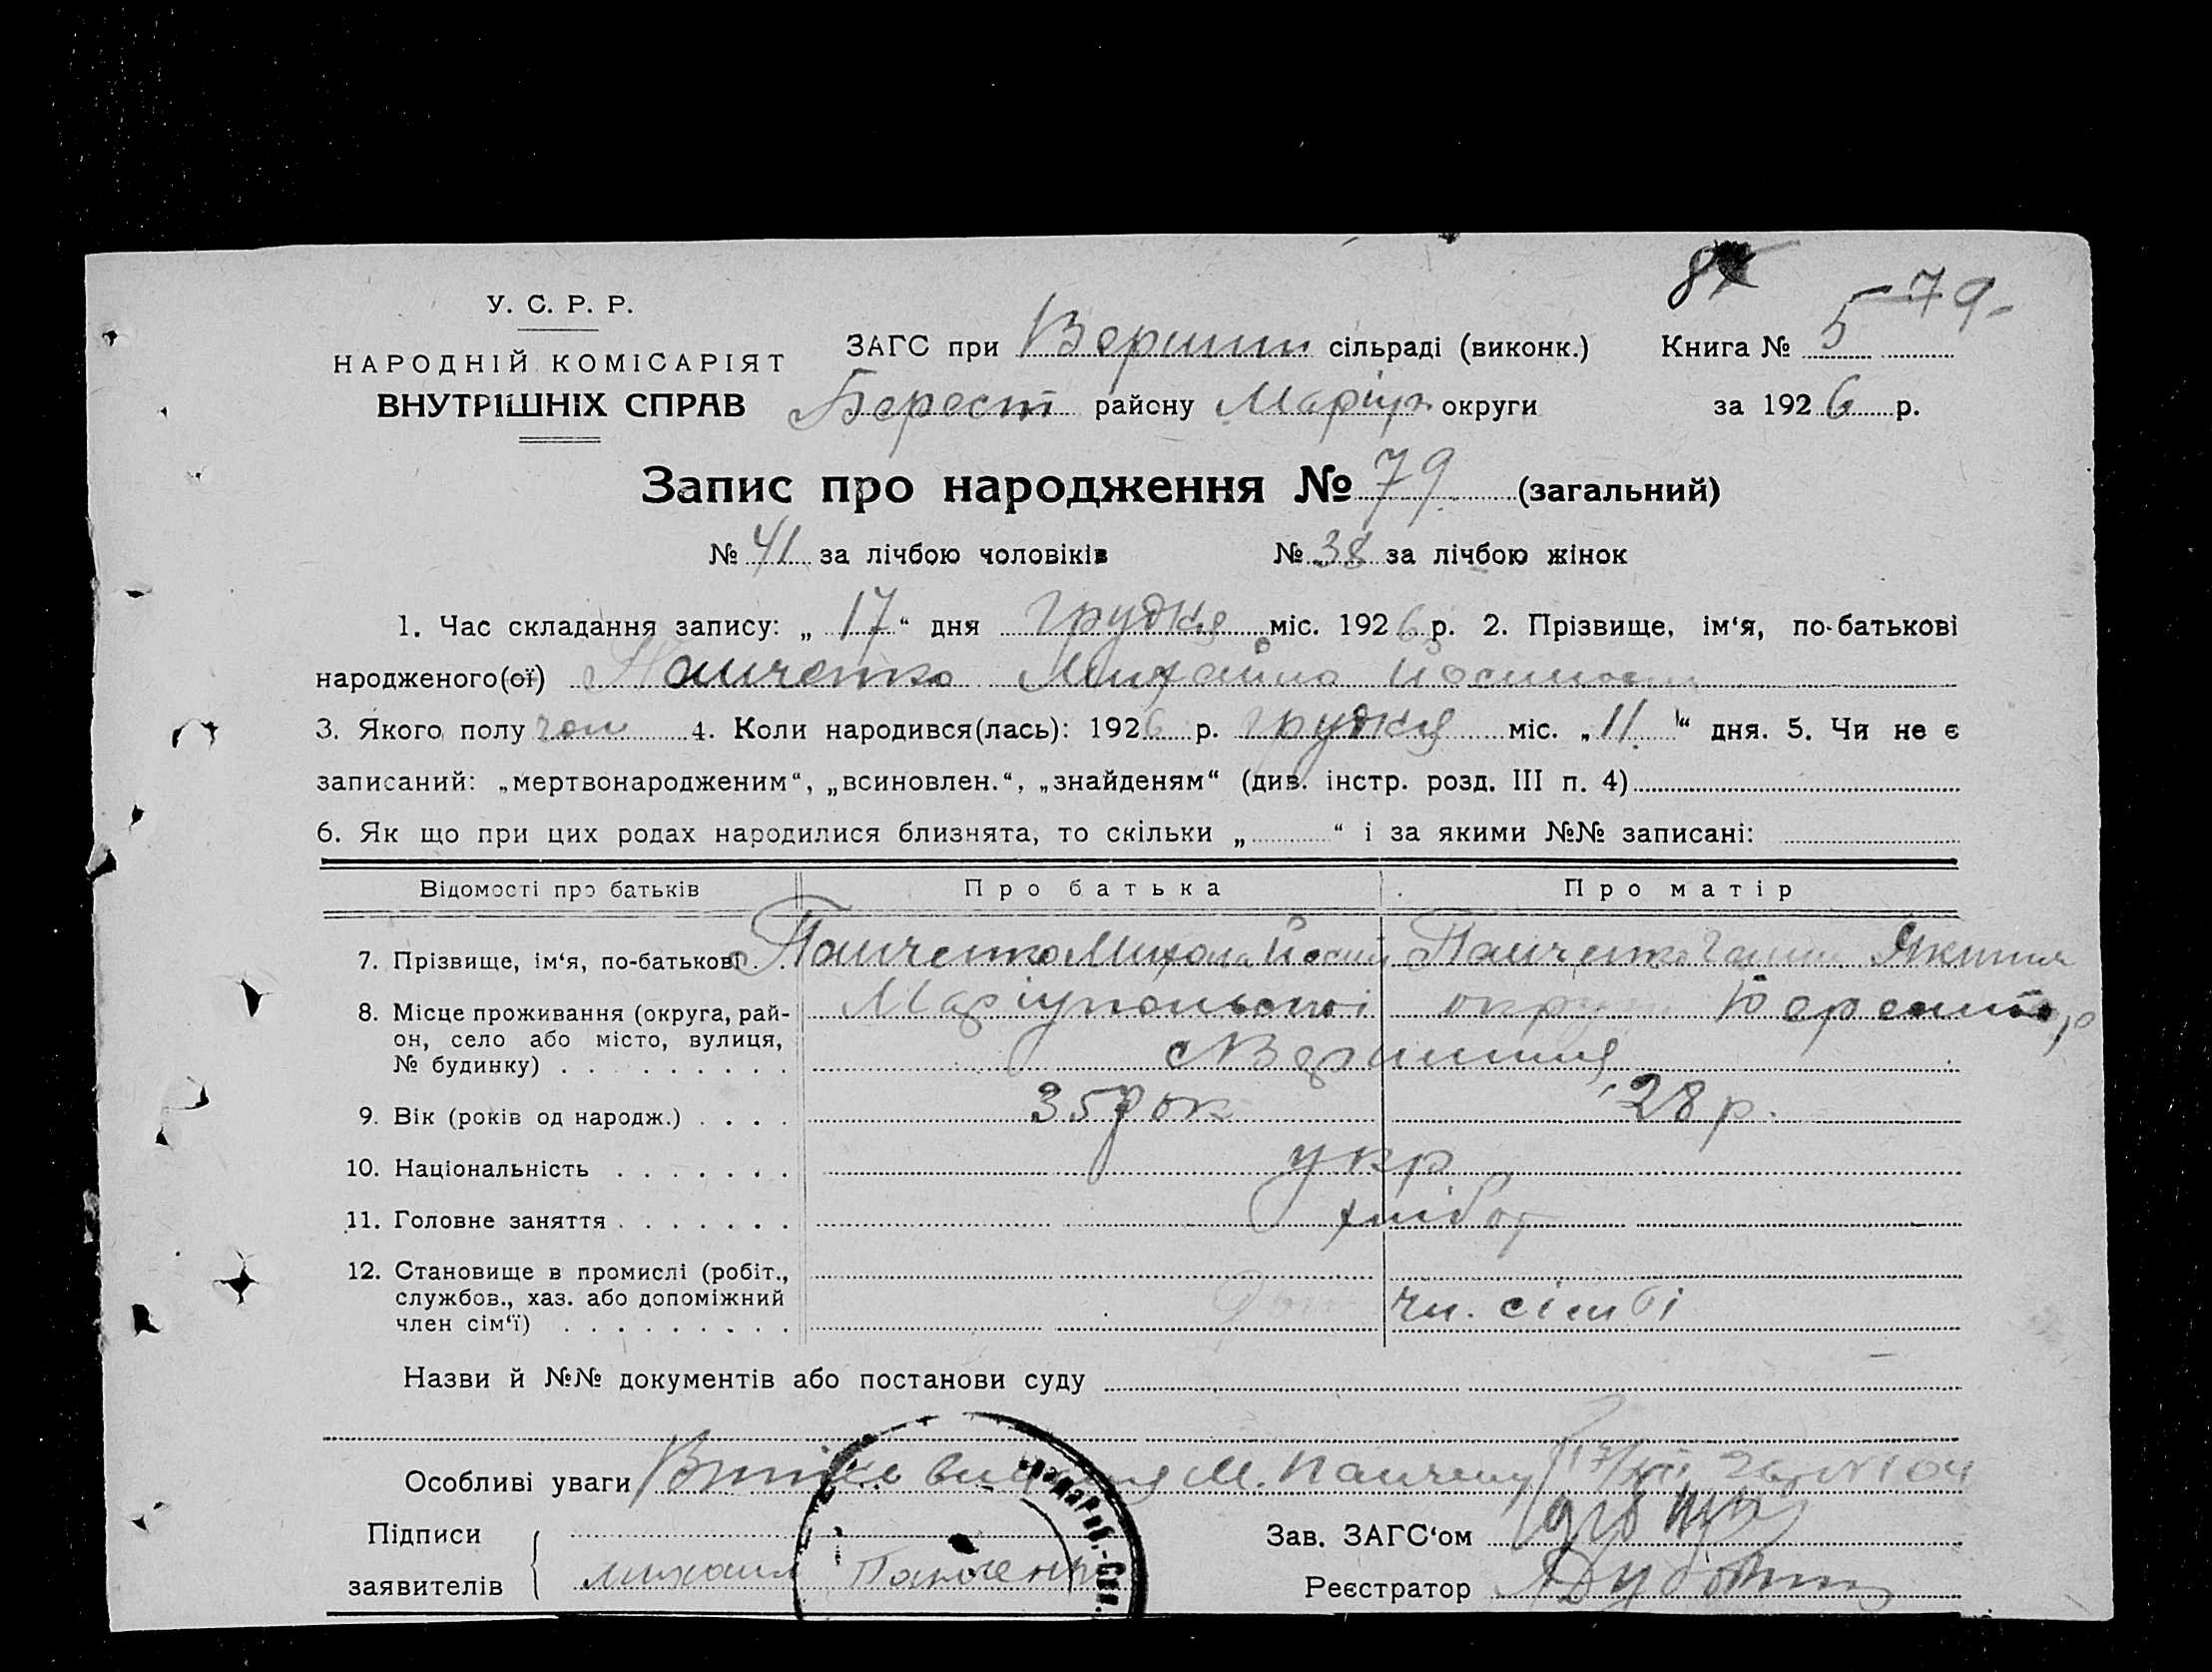 79-
У. С. Р. Р.
НАРОДНІЙ КОМІСАРІЯТ
ВНУТРІШНІХ СПРАВ
ЗАГС при Вершин сільраді (виконк.) Книга № 5
Берест району Маріуп округи за 1926 р.
Запис про народження № 79 (загальний)
№ 41 за лічбою чоловіків № 38 за лічбою жінок
1. Час складання запису: „ 17 “ дня грудня міс. 1926 р. 2. Прізвище, ім‘я, по-батькові
народженого(ої) Панченко Михайло
3. Якого полу чол 4. Коли народився(лась): 1926 р. грудня міс. „ 11 “ дня. 5. Чи не є
записаний: „мертвонародженим“, „всиновлен.“, „знайденям“ (див. інстр. розд. III п. 4)
6. Як що при цих родах народилися близнята, то скільки „ “ і за якими №№ записані:
Відомості про батьків Про батька Про матір
7. Прізвище, ім‘я, по-батькові . . Панченко Панченко
8. Місце проживання (округа, рай-
он, село або місто, вулиця,
№ будинку) . . . . . . . . . Маріупольської округи
9. Вік (років од народж.) . . . . 35 рок 28 р.
10. Національність . . . . . . . укр
11. Головне заняття . . . . . . . хлібор
12. Становище в промислі (робіт.,
службов., хаз. або допоміжний
член сім‘ї) . . . . . . . . . чл. сімʼї
Назви й №№ документів або постанови суду
Особливі уваги М. Панченку 17/XII 26 №104
Підписи
заявителів Михаил Панченко
Зав. ЗАГС‘ом
Реєстратор